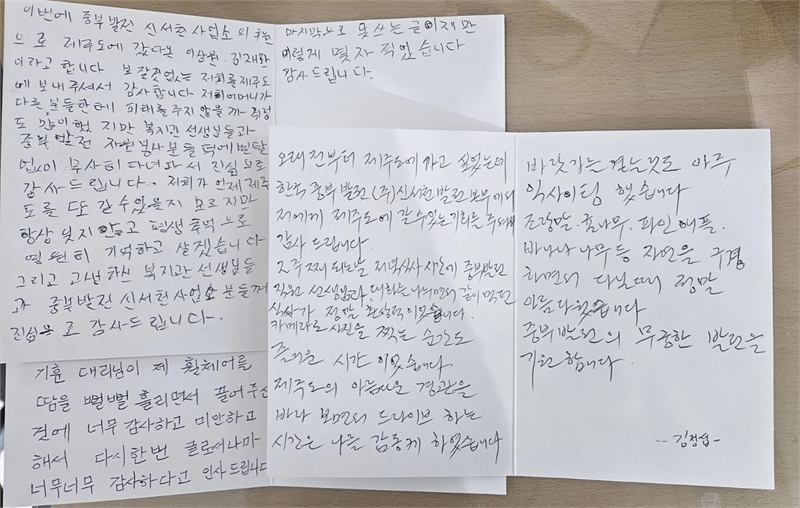 이번에 중부발전 신서천 사업소의 후원
으로 제주도에 갔다온 이상원. 김재환
이라고 합니다 보잘것없는 저희를 제주도
에 보내주셔서 감사합니다 저희어머니가
다른 분들한테 피해를 주지 않을까 걱정
도 많이했 지만 복지관 선생님들과
중부 발전 자원봉사분들 덕에 별탈
없이 무사히 다녀와서 진심으로
감사드립니다. 저희가 언제 제주
도를 또 갈수있을지 모르지만
항상 잊지 않고 평생 추억으로
영원히 기억하고 살겠습니다
그리고 고생하신 복지관 선생님들
과 중부발전 신서천 사업소 분들께
진심으로 감사드립니다.
마지막으로 못쓰는 글이지만
이렇게 몇자 적었습니다
감사드립니다.
기훈 대리님이 제 휠체어를
땀을 뻘뻘 흘리면서 끌어주신
것에 너무 감사하고 미안하고
해서 다시한번 글로서나마
너무너무 감사하다고 인사드립니다
오래전부터 제주도에 가고 싶었는데
한국중부발전(주)신서천발전본부에서
저에게 제주도에 갈수있는 기회를 주셔서
감사드립니다.
2주째되는날 저녁식사 시간에 중부발전
직원 선생님과 대화를 나누면서 같이 먹던
식사가 정말 환상적이었습니다.
카메라로 사진을 찍는 순간도
즐거운 시간이었습니다
제주도의 아름다운 경관을
바라보면서 드라이브 하는
시간은 나를 감동케 하였습니다
바닷가를 걷는것도 아주
익사이팅 했습니다
조랑말. 귤나무. 파인애플.
바나나 나무등 자연을 구경
하면서 다닐때 정말
아름다웠습니다
중부발전의 무궁한 발전을
기원합니다.
-김정섭-